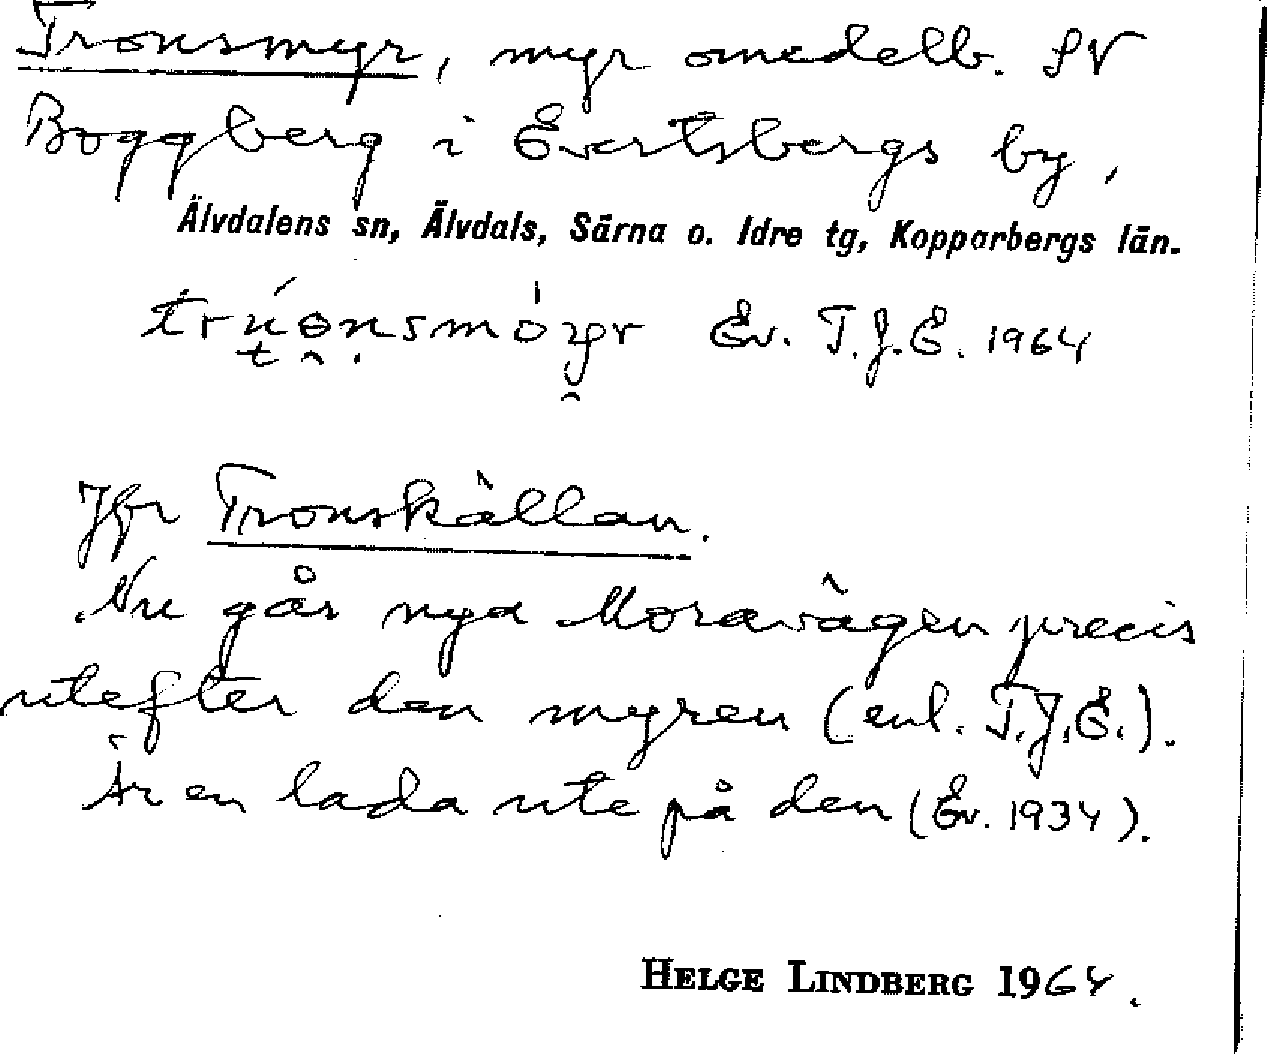 Tronsmyr, myr omedelb. SV
Boggberg i Evertsbergs by,
Älvdalens sn, Älvdals, Särna o. Idre tg, Kopparbergs län.
Ev. T.J.E. 1964
Jfr Tronskällan.
Nu går nya Moravägen precis
utefter den myren (enl. T.J.E.).
Är en lada ute på den (Ev. 1934).
HELGE LINDBERG 1964.